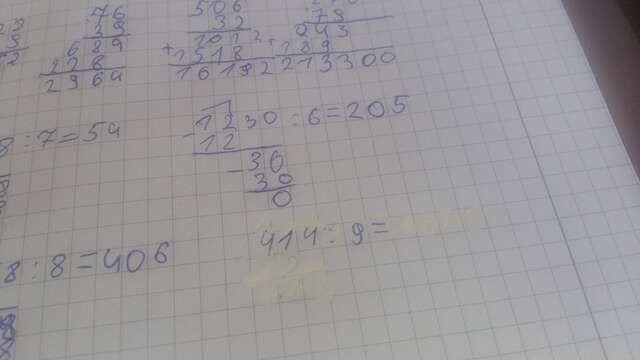 76
39
689
228
2964
506
32
1012
+1518
16192
943
+189
213300
:7=54
1230:6=205
-12
-30
30
0
8:8=406
414:9=